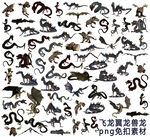 飞龙翼龙兽龙
png免扣素材